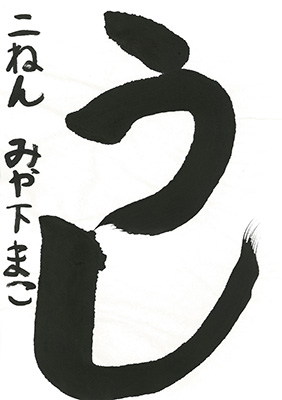 うし
二ねん みや下まこ